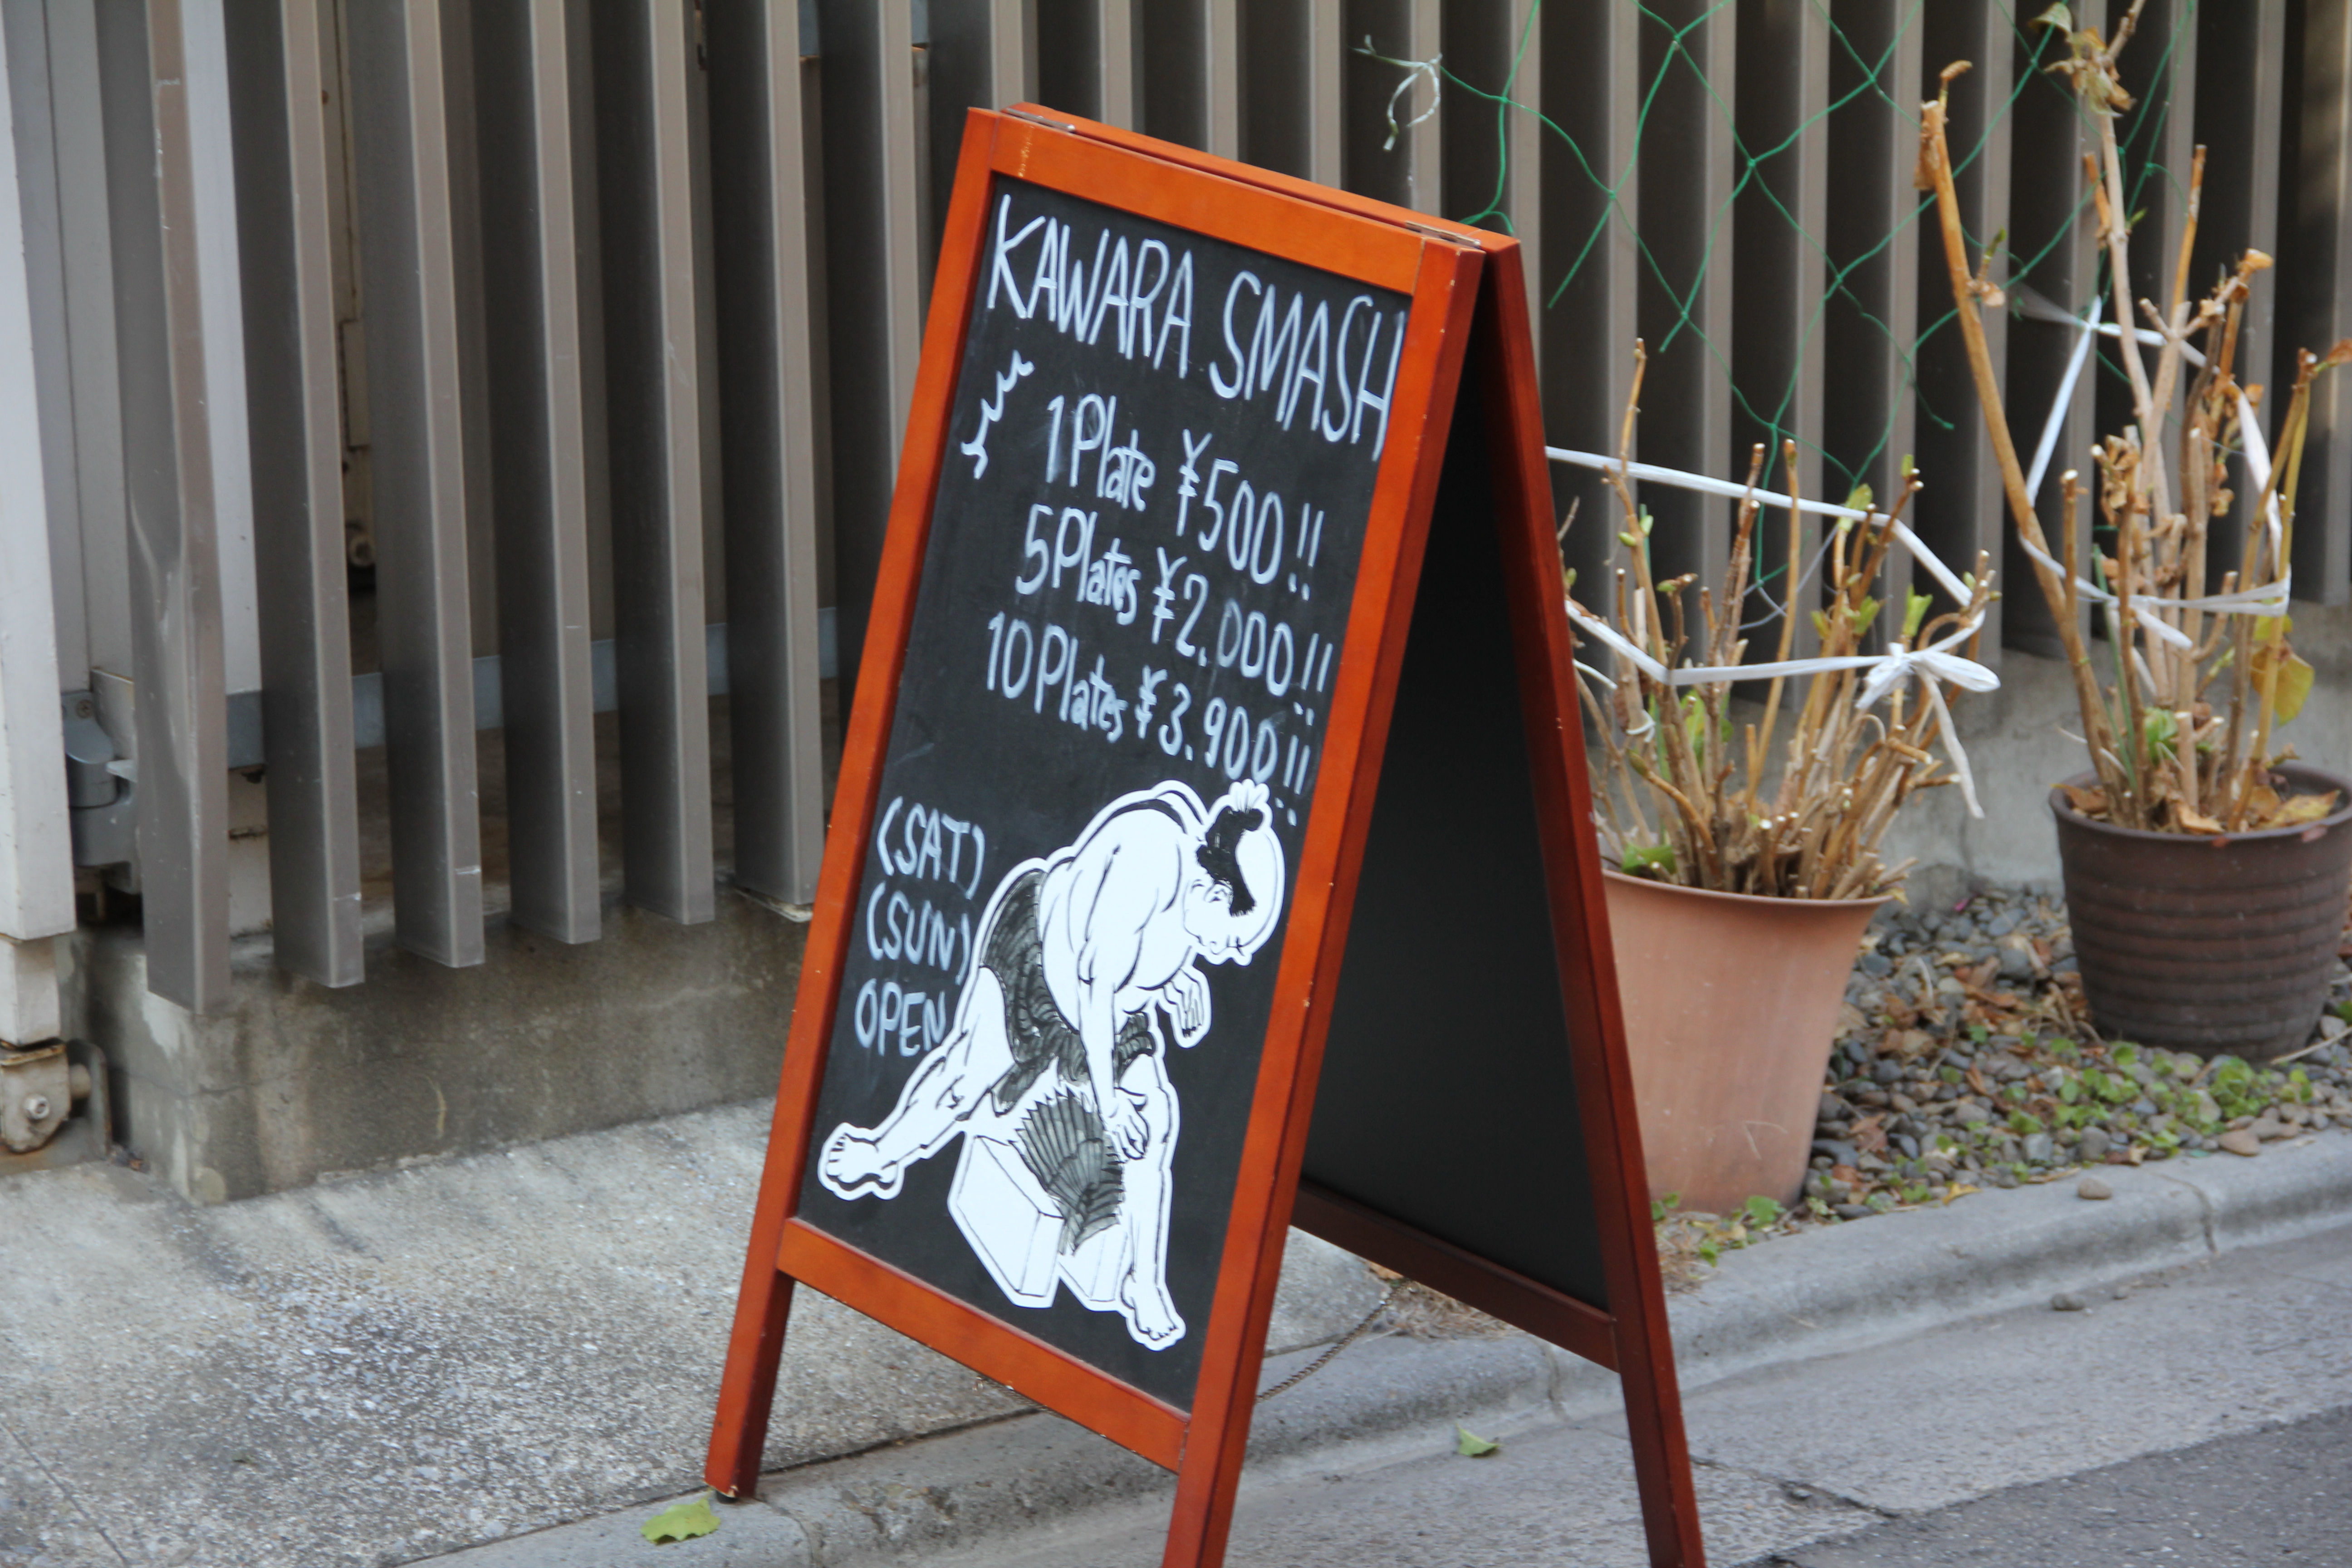 KAWARA SMASH
1 Plate ¥500!!
5 Plates ¥2.000!!
10 Plates ¥3.900!!
(SAT)
(SUN)
OPEN